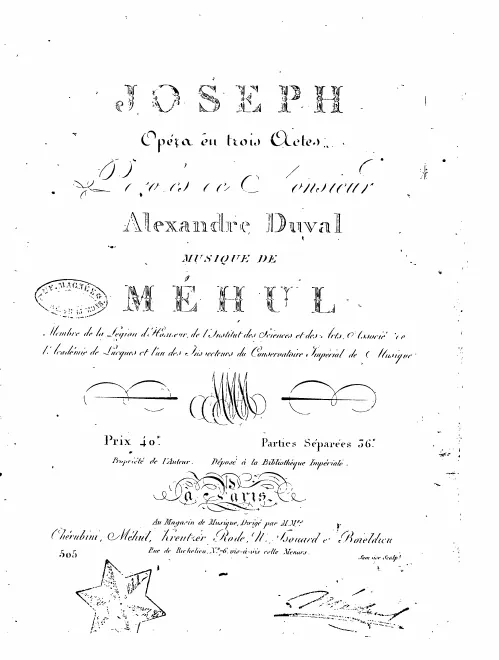 JOSEPH
Opéra en trois Actes.
Paroles de Monsieur
Alexandre Duval
MUSIQUE DE
MÉHUL
Membre de la Légion d'Honneur, de l'Institut des Sciences et des Arts, Associé de
l'Académie de Lucques et l'un des Inspecteurs du Conservatoire Impérial de Musique
Prix 40.
Parties Séparées 36.
Propriété de l'Auteur.
Déposé à la Bibliothèque Impériale.
à Paris
Au Magasin de Musique, Dirigé par M.Mrs.
Chérubini, Méhul, Kreutzer, Rode, N. Isouard et Boieldieu
505
Rue de Richelieu, N.º 76, vis-à-vis celle Menars
Sculp.